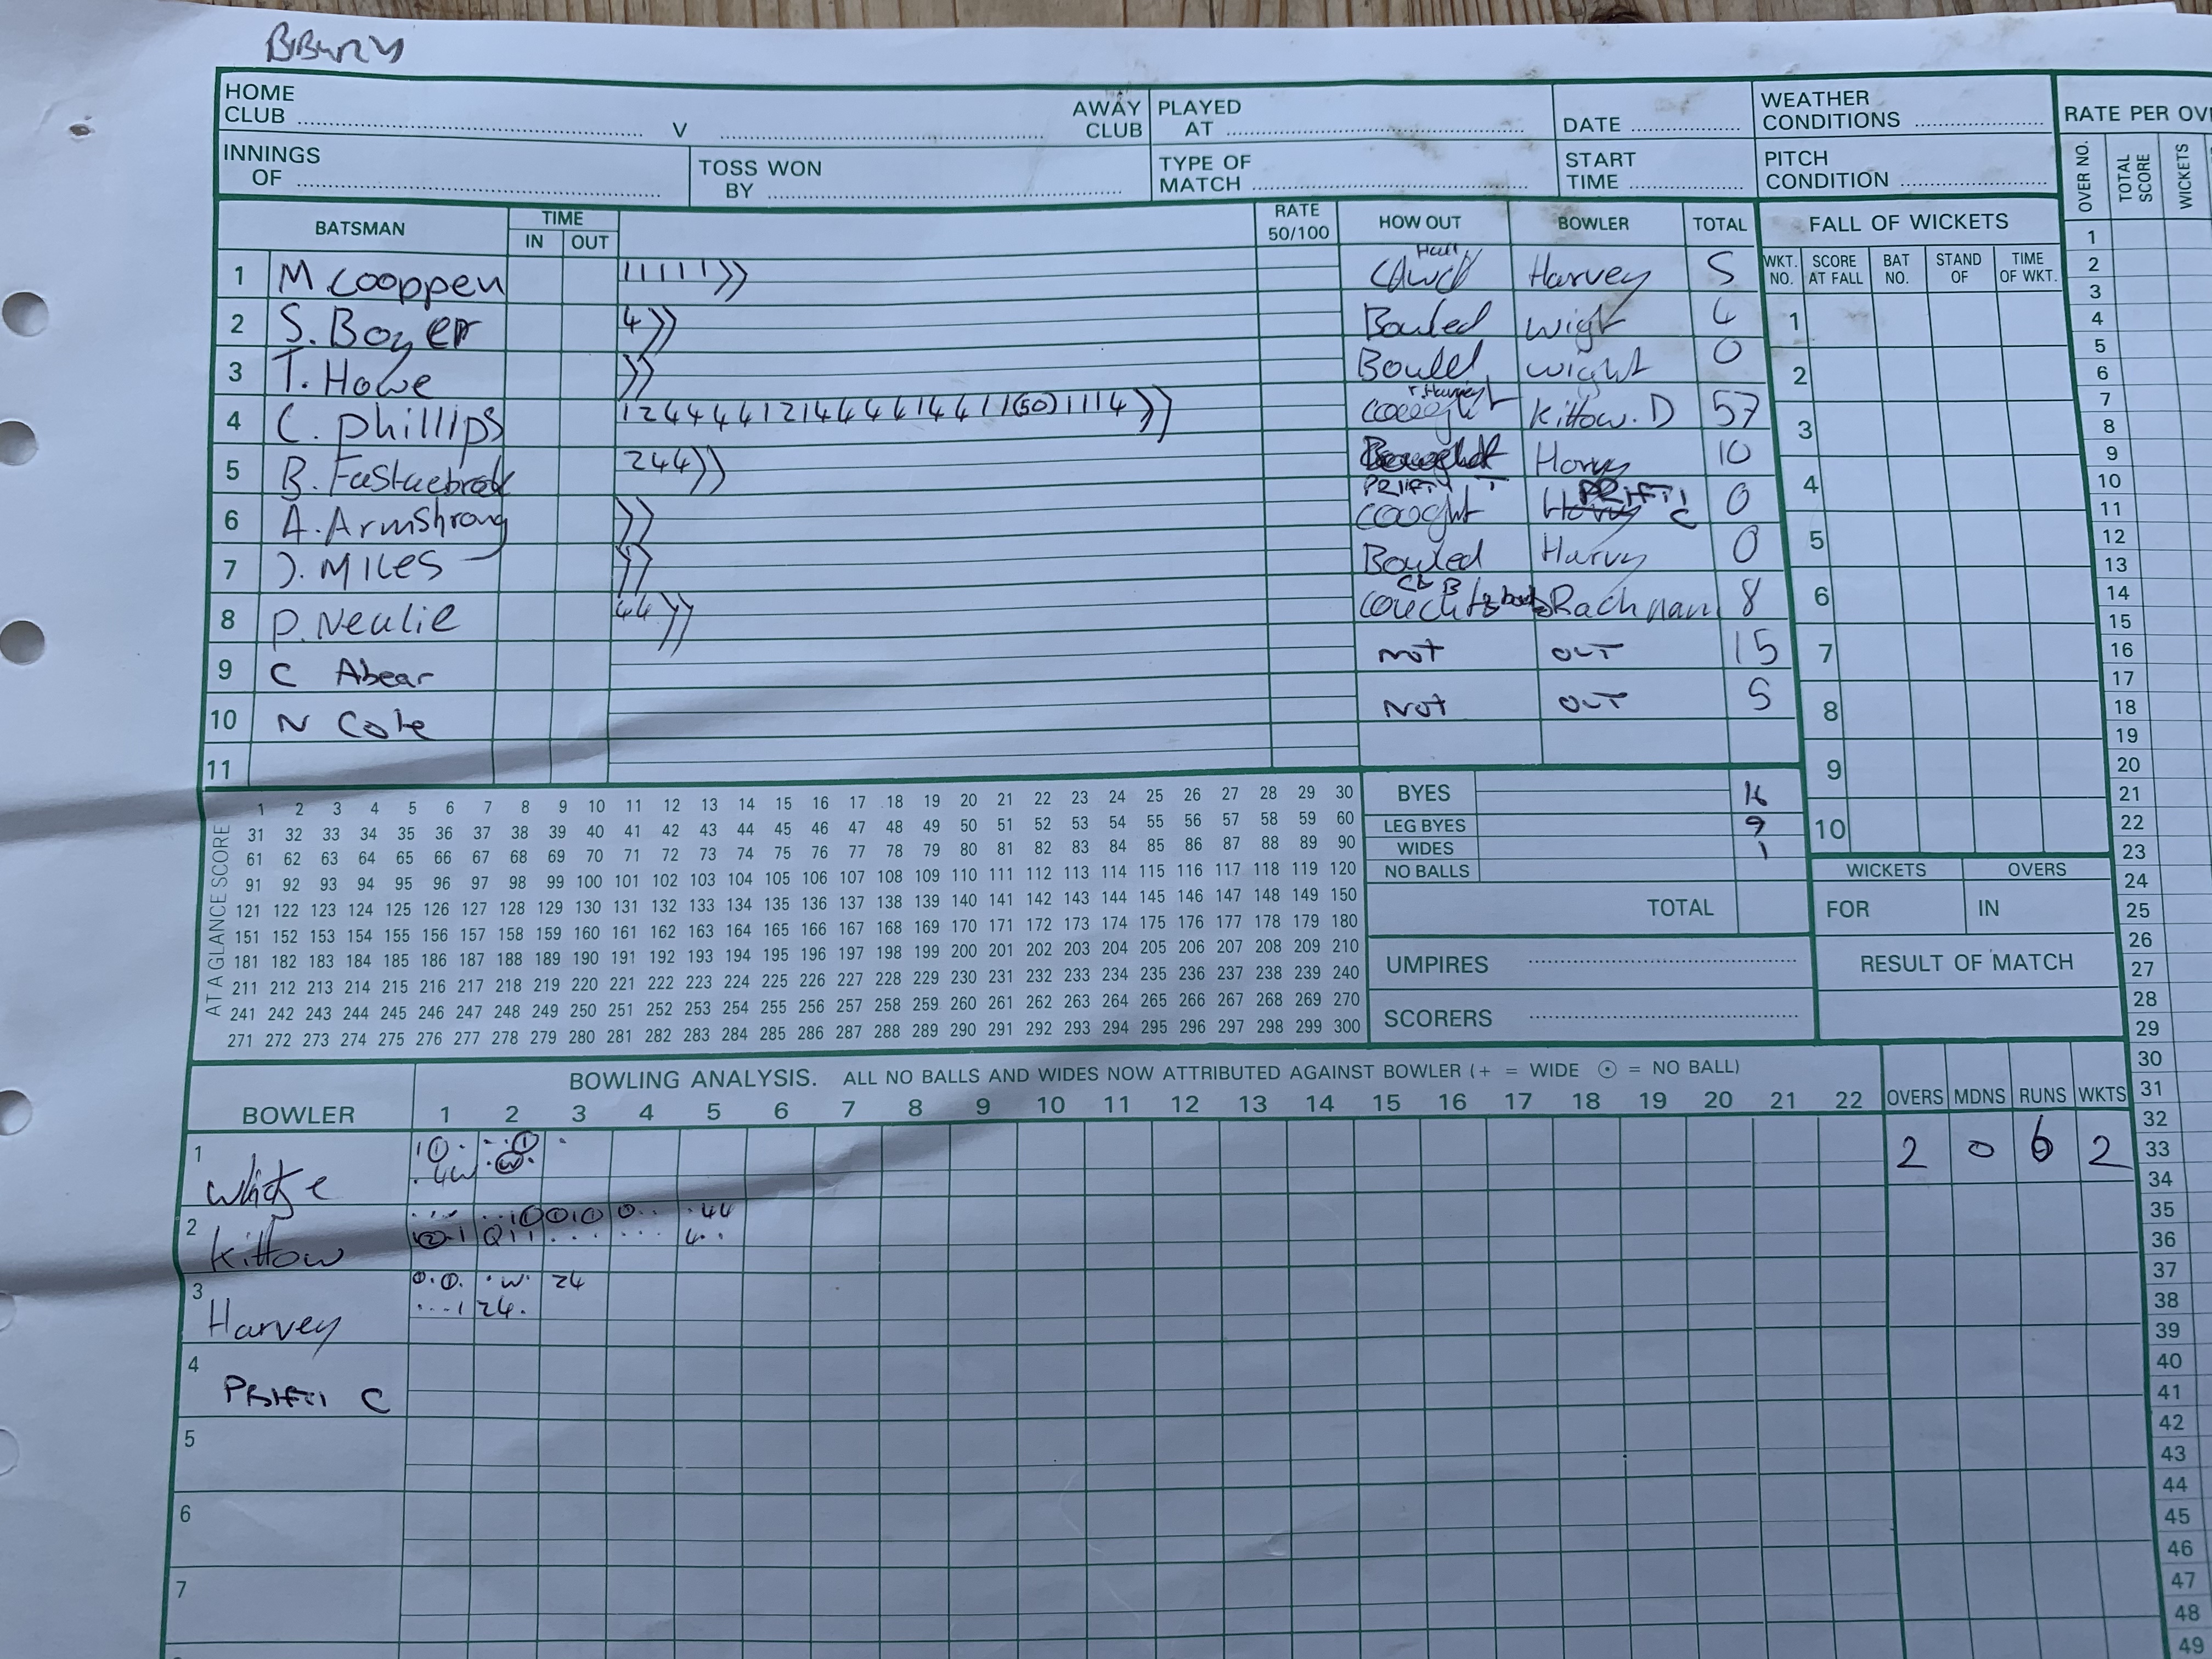 BiBury
HOME CLUB V AWAY CLUB PLAYED AT DATE WEATHER CONDITIONS RATE PER OV
INNINGS OF TOSS WON BY TYPE OF MATCH START TIME PITCH CONDITION OVER NO. TOTAL SCORE WICKETS
BATSMAN TIME IN OUT RATE 50/100 HOW OUT BOWLER TOTAL FALL OF WICKETS
WKT. NO. SCORE AT FALL BAT NO. STAND OF TIME OF WKT.
1 M Cooppen 11111 Hall Harvey 5
2 S. Boyer 4 Bowled Wight 4
3 T. Howe Bowled Wight 0
4 C. Phillips (50) 1114 Harvey Kittow. D 57
5 B. 244 10
6 A. Armstrong PRIFTI T cought PRIFTI C 0
7 J. Miles Bowled Harvy 0
8 P. Neulie 44 Rachman 8
9 C Abear Not OUT 15
10 N Cole Not OUT 5
11
1 2 3 4 5 6 7 8 9 10
AT A GLANCE SCORE
1 2 3 4 5 6 7 8 9 10 11 12 13 14 15 16 17 18 19 20 21 22 23 24 25 26 27 28 29 30
31 32 33 34 35 36 37 38 39 40 41 42 43 44 45 46 47 48 49 50 51 52 53 54 55 56 57 58 59 60
61 62 63 64 65 66 67 68 69 70 71 72 73 74 75 76 77 78 79 80 81 82 83 84 85 86 87 88 89 90
91 92 93 94 95 96 97 98 99 100 101 102 103 104 105 106 107 108 109 110 111 112 113 114 115 116 117 118 119 120
121 122 123 124 125 126 127 128 129 130 131 132 133 134 135 136 137 138 139 140 141 142 143 144 145 146 147 148 149 150
151 152 153 154 155 156 157 158 159 160 161 162 163 164 165 166 167 168 169 170 171 172 173 174 175 176 177 178 179 180
181 182 183 184 185 186 187 188 189 190 191 192 193 194 195 196 197 198 199 200 201 202 203 204 205 206 207 208 209 210
211 212 213 214 215 216 217 218 219 220 221 222 223 224 225 226 227 228 229 230 231 232 233 234 235 236 237 238 239 240
241 242 243 244 245 246 247 248 249 250 251 252 253 254 255 256 257 258 259 260 261 262 263 264 265 266 267 268 269 270
271 272 273 274 275 276 277 278 279 280 281 282 283 284 285 286 287 288 289 290 291 292 293 294 295 296 297 298 299 300
BYES 16
LEG BYES 9
WIDES 1
NO BALLS
TOTAL
WICKETS OVERS
FOR IN
UMPIRES
SCORERS
RESULT OF MATCH
BOWLING ANALYSIS. ALL NO BALLS AND WIDES NOW ATTRIBUTED AGAINST BOWLER (+ = WIDE ⊙ = NO BALL)
BOWLER 1 2 3 4 5 6 7 8 9 10 11 12 13 14 15 16 17 18 19 20 21 22 OVERS MDNS RUNS WKTS
1 2 0 6 2
2 Kittow
3 Harvey
4 PRIFTI C
5
6
7
1 2 3 4 5 6 7 8 9 10 11 12 13 14 15 16 17 18 19 20 21 22 23 24 25 26 27 28 29 30 31 32 33 34 35 36 37 38 39 40 41 42 43 44 45 46 47 48 49